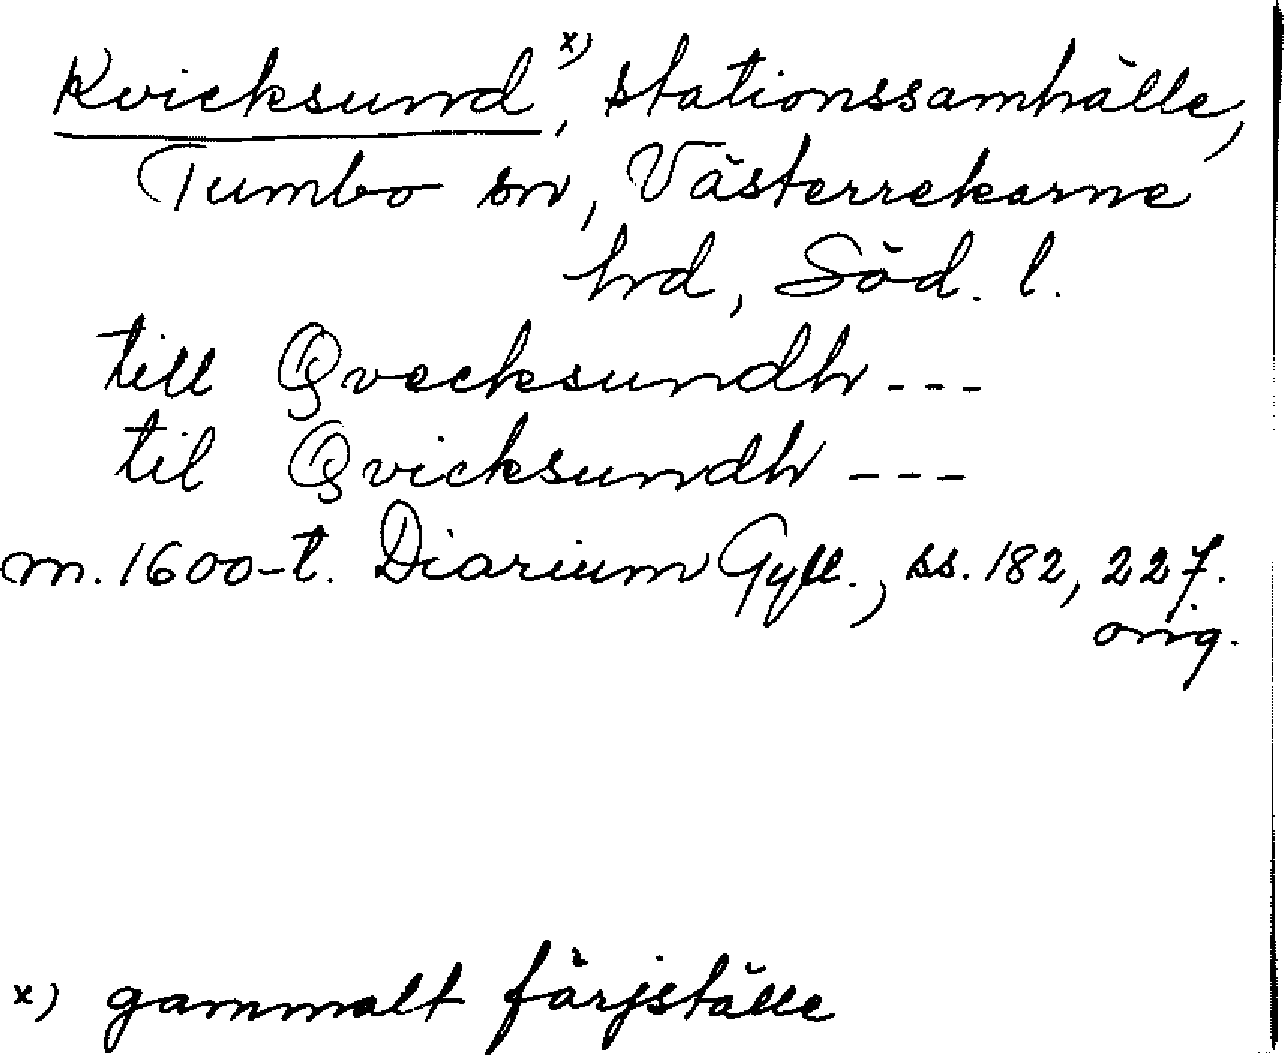 Kvicksund x), stationssamhälle,
Tumbo sn, Västerrekarne
hrd, Söd. l.
till Qvecksundh ---
til Qvicksundh ---
m. 1600-t. Diarium Gyll., ss. 182, 227.
orig.
x) gammalt färjställe